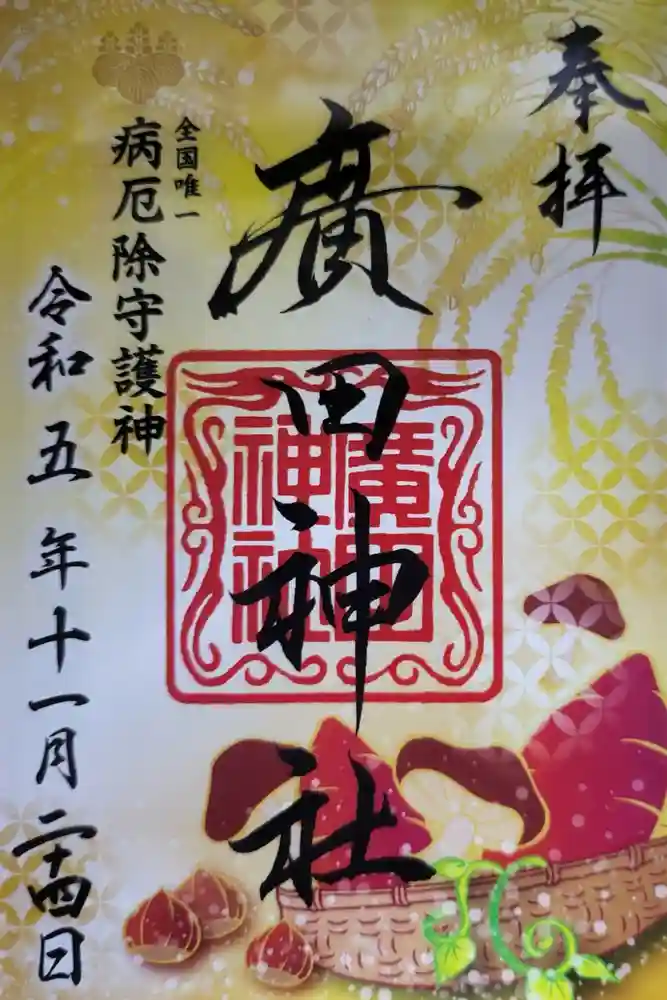 奉拝
廣田神社
廣田
神社
全国唯一
病厄除守護神
令和五年十一月二十四日